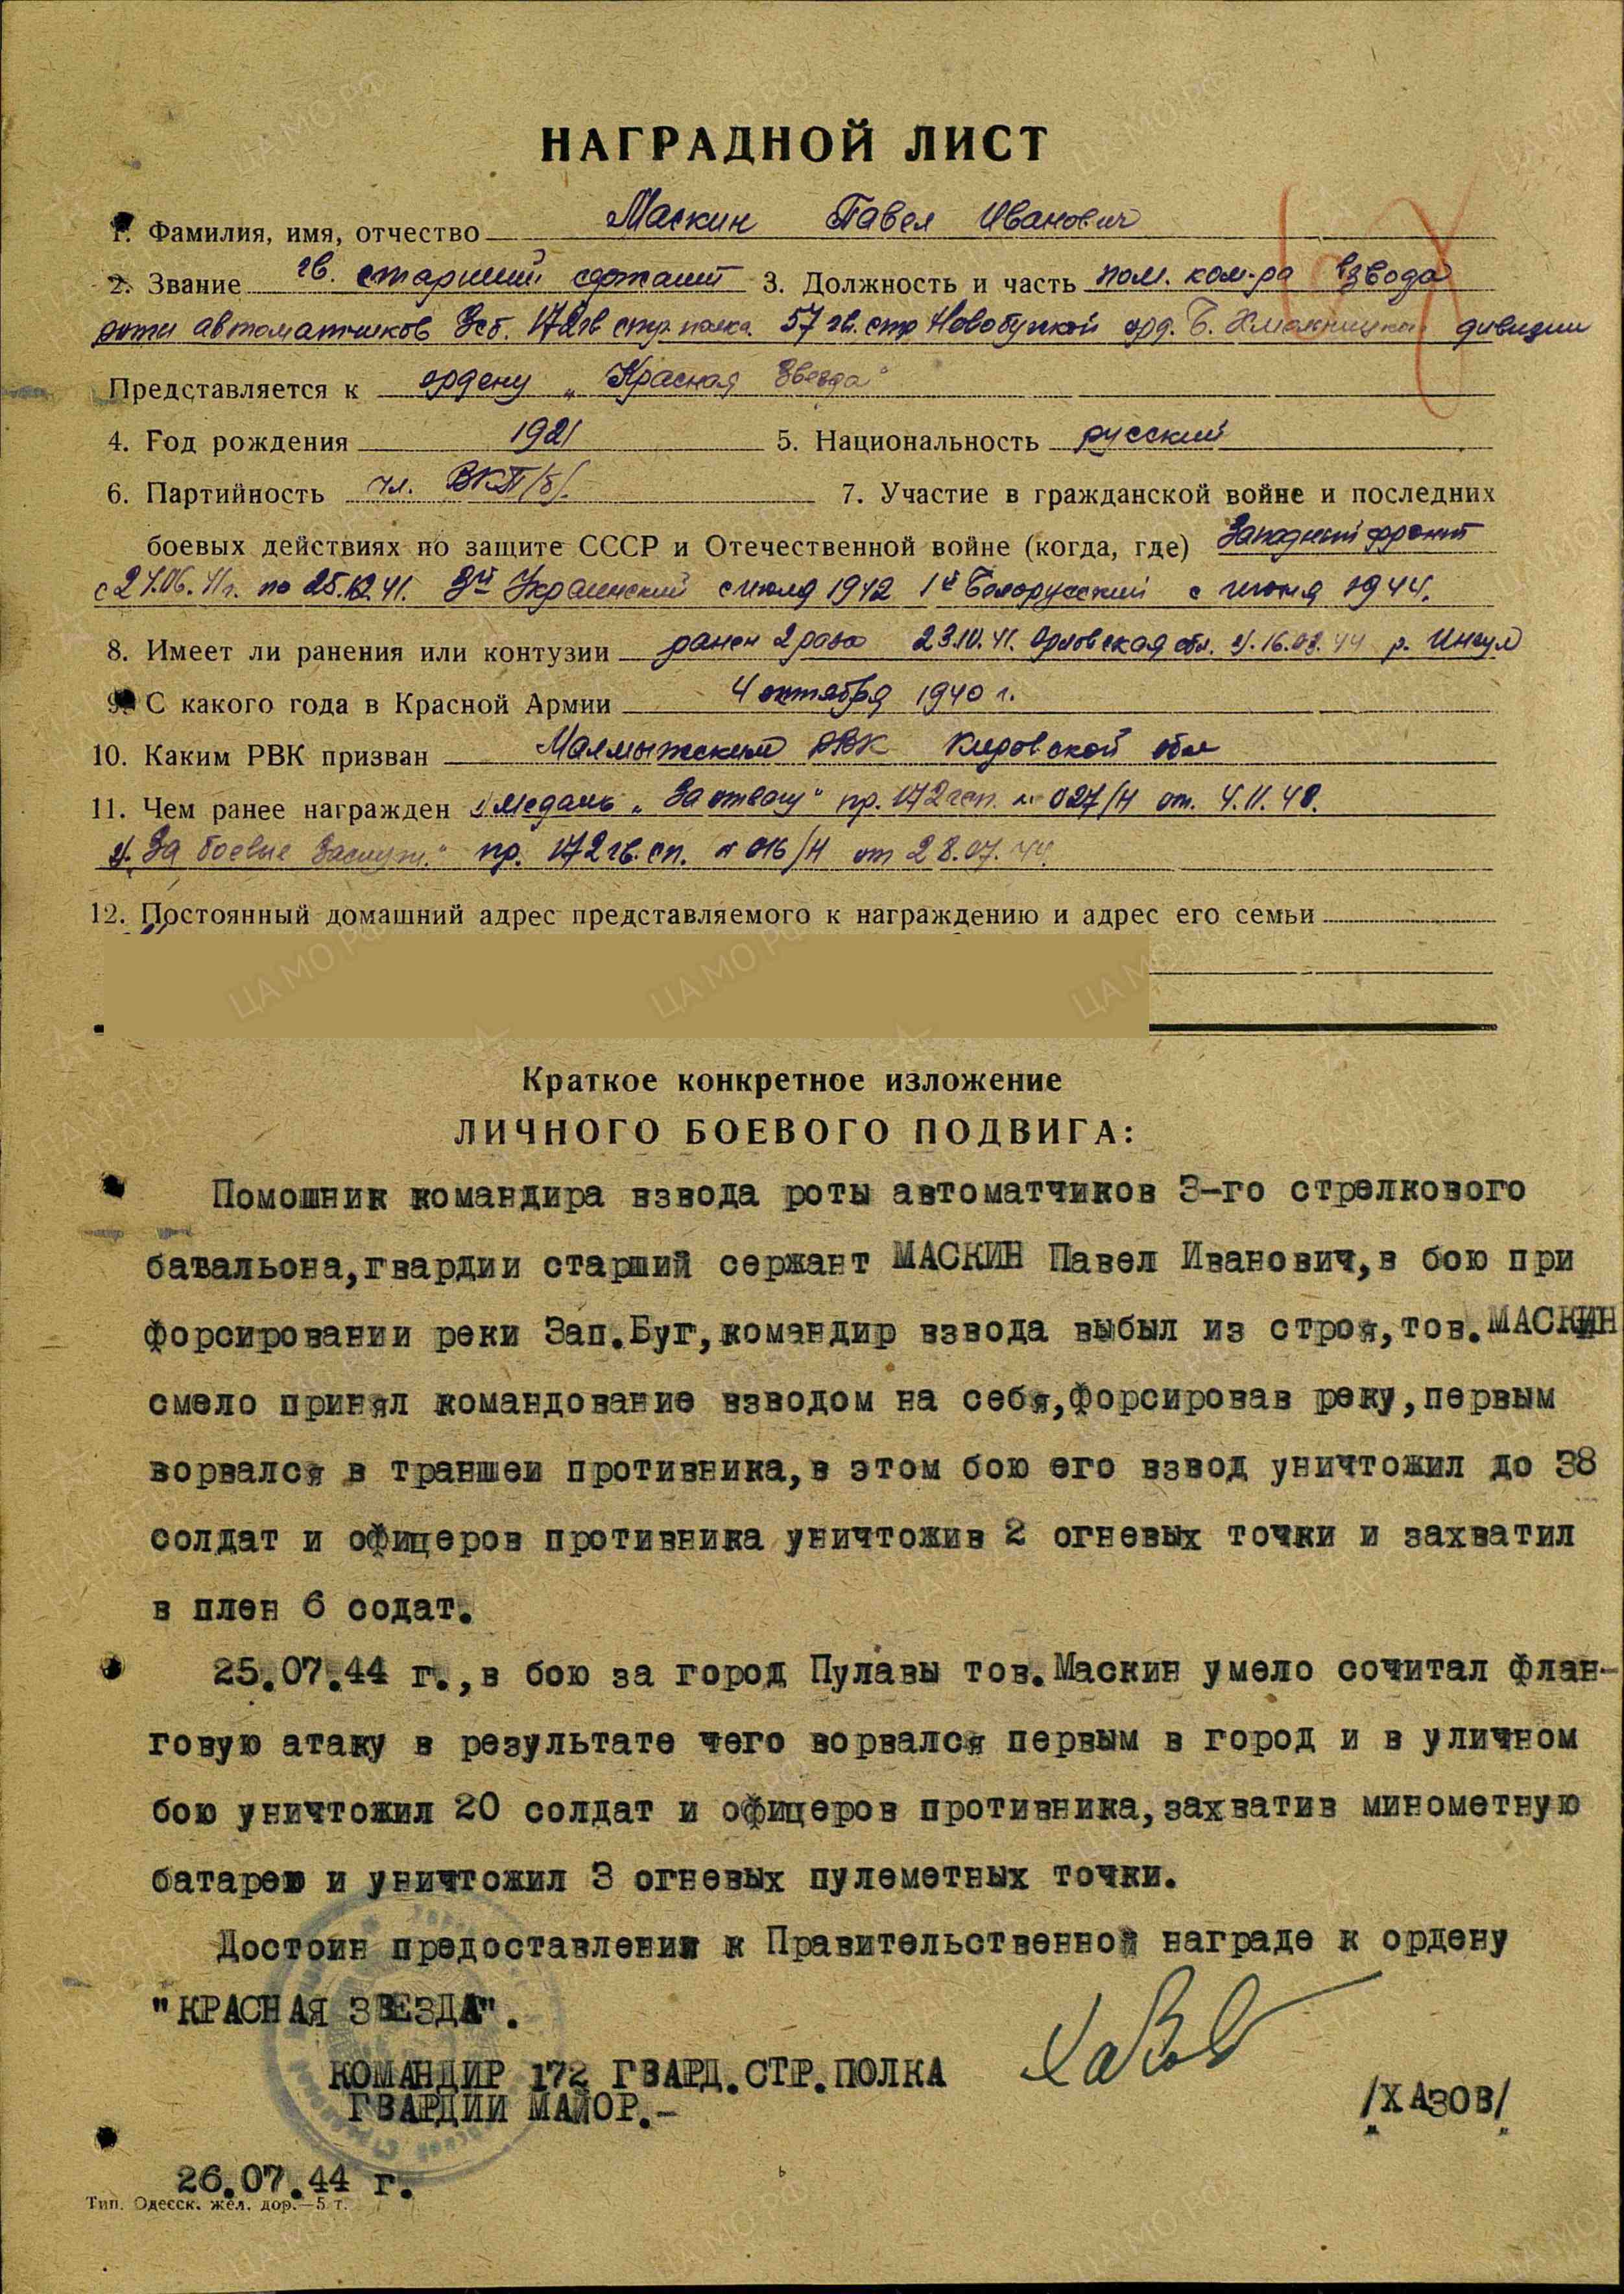 НАГРАДНОЙ ЛИСТ
1. Фамилия, имя, отчество Маскин Павел Иванович
2. Звание гв. старший сержант 3. Должность и часть пом. ком-ра взвода
роты автоматчиков 3сб. 172гв стр. полка 57 гв. стр Новобугской орд. Б. Хмельницкого дивизии
Представляется к ордену „Красная Звезда"
4. Год рождения 1921 5. Национальность русский
6. Партийность чл. ВКП/б/. 7. Участие в гражданской войне и последних
боевых действиях по защите СССР и Отечественной войне (когда, где) Западный фронт
с 27.06.41г. по 25.12.41. 3й Украинский с июля 1942 1й Белорусский с июня 1944.
8. Имеет ли ранения или контузии ранен 2 раза 23.10.41. Орловская обл. 2). 16.03.44 р. Ингул
9. С какого года в Красной Армии 4 октября 1940 г.
10. Каким РВК призван Малмыжским РВК Кировской обл
11. Чем ранее награжден 1) медаль „За отвагу" пр. 172 гсп. № 027/Н от. 4.11.43.
2). За боевые заслуги." пр. 172 гв. сп. № 016/Н от 28.07.44.
12. Постоянный домашний адрес представляемого к награждению и адрес его семьи
Краткое конкретное изложение
ЛИЧНОГО БОЕВОГО ПОДВИГА:
Помошник командира взвода роты автоматчиков 3-го стрелкового
батальона,гвардии старший сержант МАСКИН Павел Иванович,в бою при
форсировании реки Зап.Буг,командир взвода выбыл из строя,тов.МАСКИН
смело принял командование взводом на себя,форсировав реку,первым
ворвался в траншеи противника,в этом бою его взвод уничтожил до 38
солдат и офицеров противника уничтожив 2 огневых точки и захватил
в плен 6 содат.
25.07.44 г.,в бою за город Пулавы тов.Маскин умело сочитал флан-
говую атаку в результате чего ворвался первым в город и в уличном
бою уничтожил 20 солдат и офицеров противника,захватив минометную
батарею и уничтожил 3 огневых пулеметных точки.
Достоин предоставления к Правительственной награде к ордену
"КРАСНАЯ ЗВЕЗДА".
КОМАНДИР 172 ГВАРД.СТР.ПОЛКА
ГВАРДИИ МАЙОР.-
Хазов
/ХАЗОВ/
26.07.44 г.
Тип. Одесск. жел. дор.—5 т.